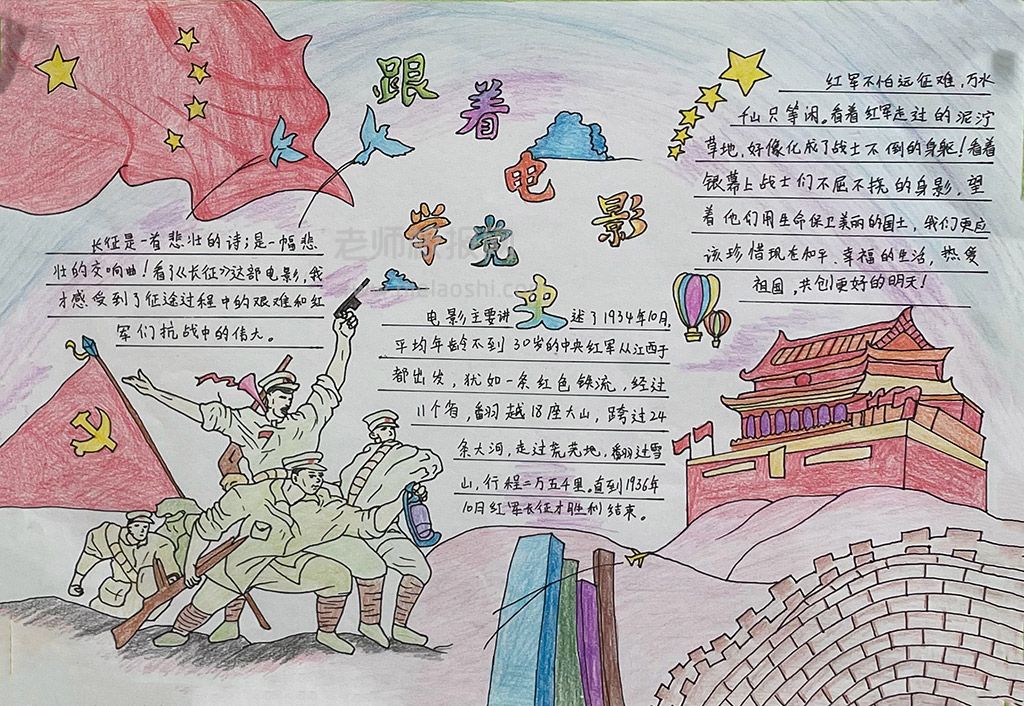 跟着电影
学党史
长征是一首悲壮的诗;是一幅悲
壮的交响曲!看了《长征》这部电影,我
才感受到了征途过程中的艰难和红
军们抗战中的伟大。
电影主要讲述了1934年10月,
平均年龄不到30岁的中央红军从江西于
都出发,犹如一条红色铁流,经过
11个省,翻越18座大山,跨过24
条大河,走过荒芜地,翻过雪
山,行程二万五千里。直到1936年
10月红军长征才胜利结束。
红军不怕远征难,万水
千山只等闲。看着红军走过的泥泞
草地,好像化成了战士不倒的身躯!看着
银幕上战士们不屈不挠的身影,望
着他们用生命保卫美丽的国土,我们更应
该珍惜现在和平、幸福的生活,热爱
祖国,共创更好的明天!